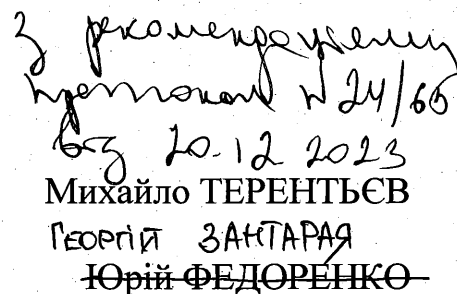 З рекомендаціями
протокол № 24/65
від 20.12 2023
Михайло ТЕРЕНТЬЄВ
ГЕОРГІЙ ЗАНТАРАЯ
Юрій ФЕДОРЕНКО